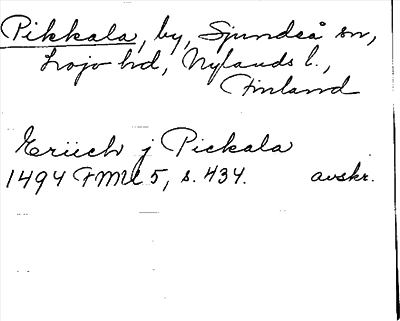 Pikkala, by, Sjundeå sn,
Lojo hd, Nylands l.,
Finland
Erüch j Pickala
1494 FMU 5, s. 434. avskr.